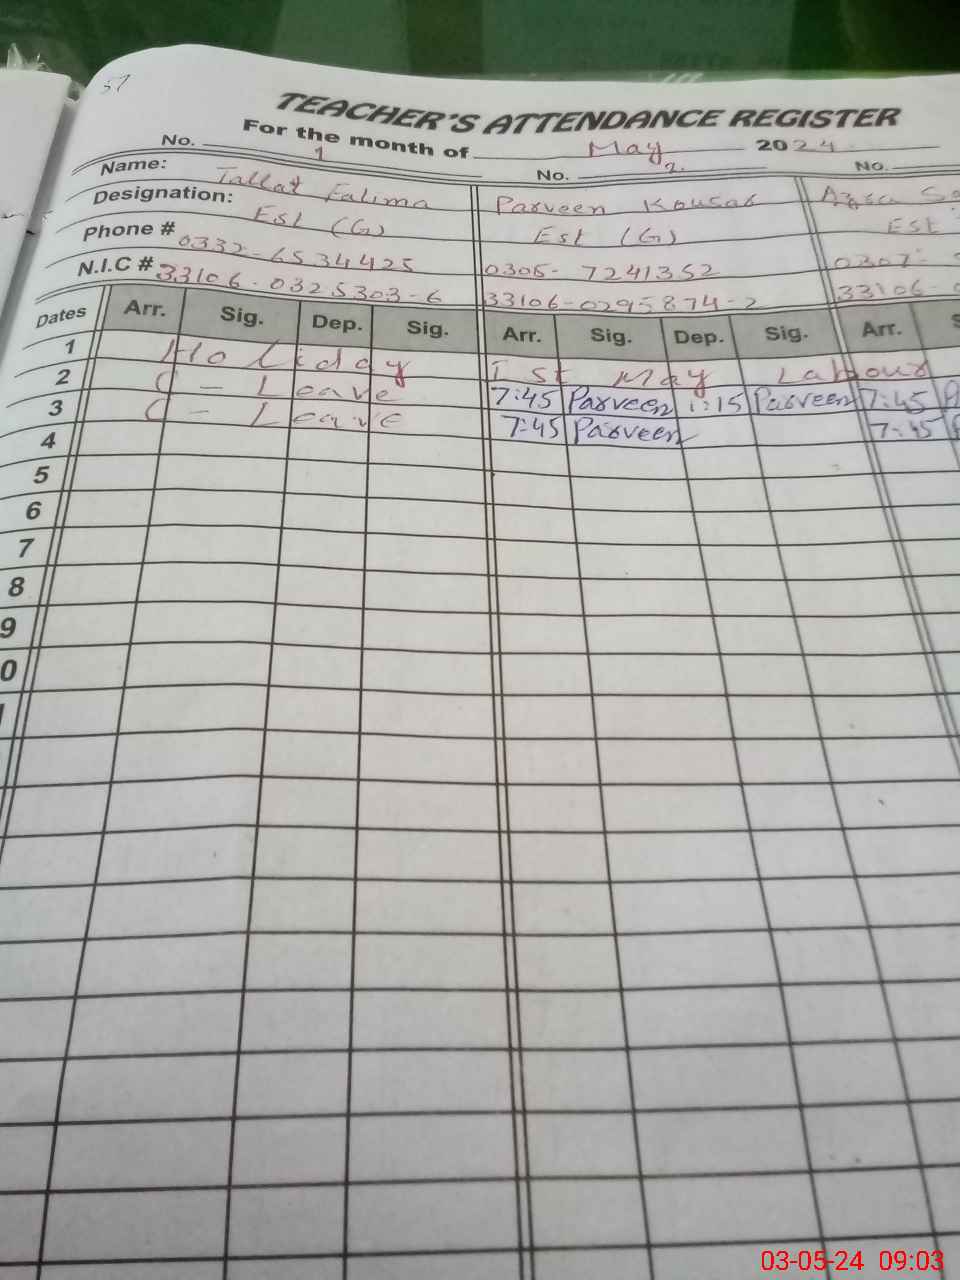 57
TEACHER'S ATTENDANCE REGISTER
For the month of May 2024
No. 1 No. 2. No.
Name: Tallat Fatima Parveen Kousar Azra
Designation: Est (G) Est (G) Est
Phone # 0332-6534425 0305-7241352 0307-
N.I.C # 33106-0325303-6 33106-0295874-2 33106-
Dates Arr. Sig. Dep. Sig. Arr. Sig. Dep. Sig. Arr.
1 Holiday Ist May Labour
2 C-Leave 7:45 Parveen 1:15 Parveen 7:45
3 C-Leave 7:45 Parveen 7:45
4
5
6
7
8
9
0
03-05-24 09:03